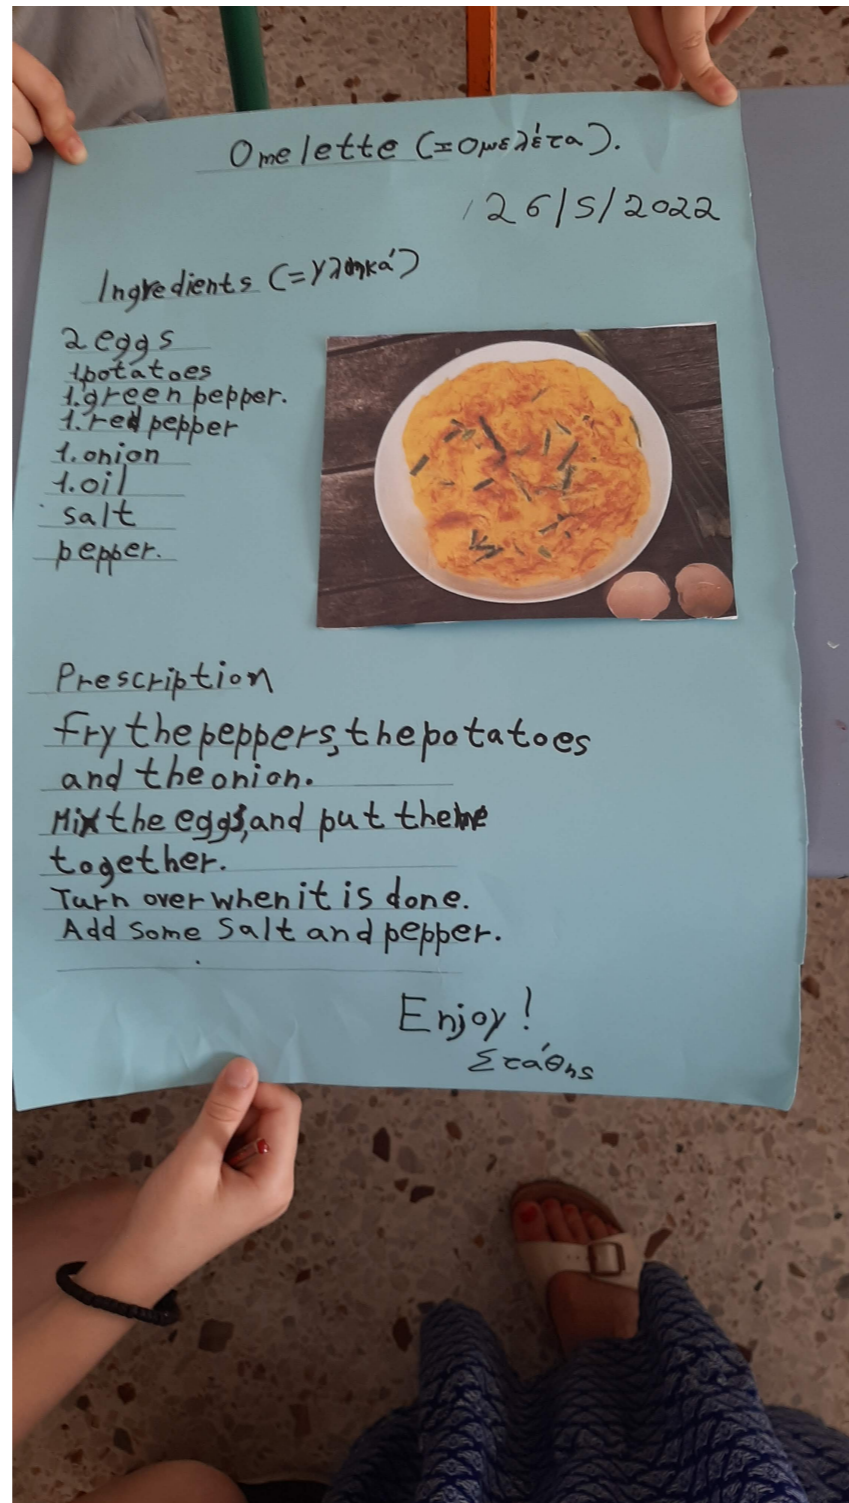 Omelette (=ομελέτα).
26/5/2022
Ingredients (=γληκά)
2 eggs
1.potatoes
1.green pepper.
1.red pepper
1.onion
1.oil
salt
pepper.
Prescription
Fry the peppers, the potatoes
and the onion.
Mix the eggs, and put
together.
Turn over when it is done.
Add some salt and pepper.
Enjoy!
Στάθης